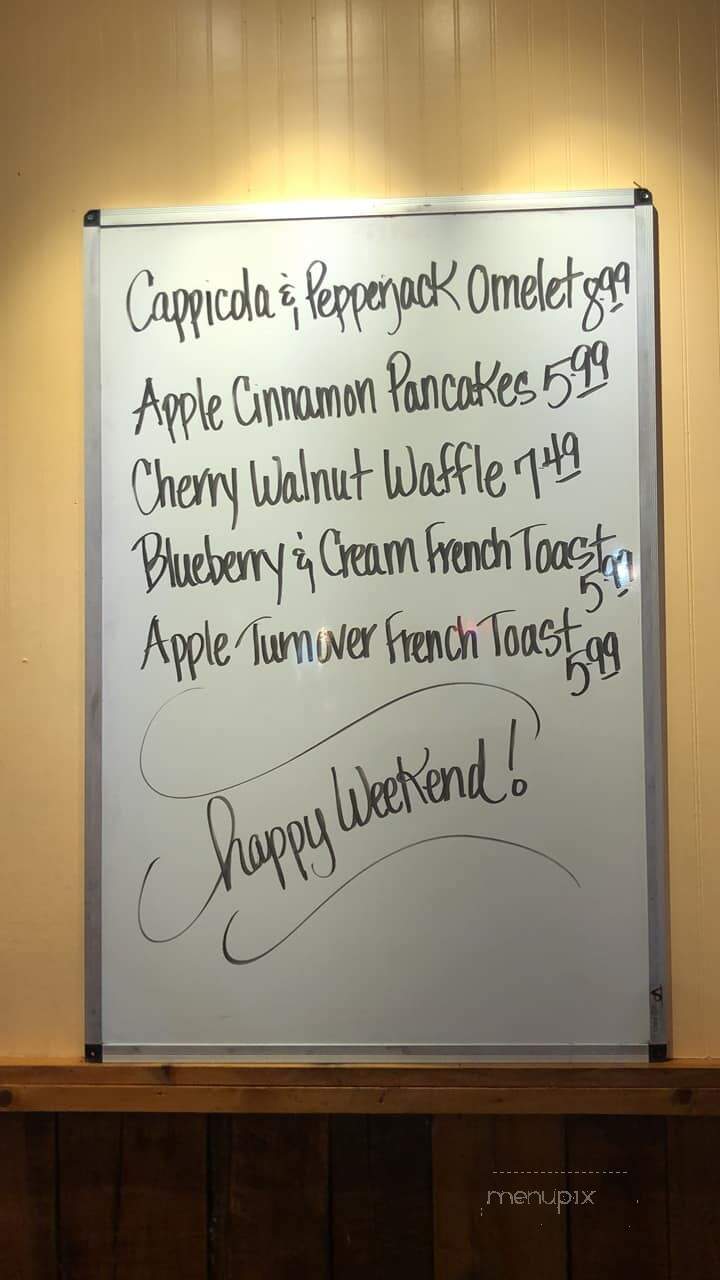 Cappicola & Pepperjack Omelet 8.99
Apple Cinnamon Pancakes 5.99
Cherry Walnut Waffle 7.49
Blueberry & Cream French Toast 5.99
Apple Turnover French Toast 5.99
happy Weekend!
menupix